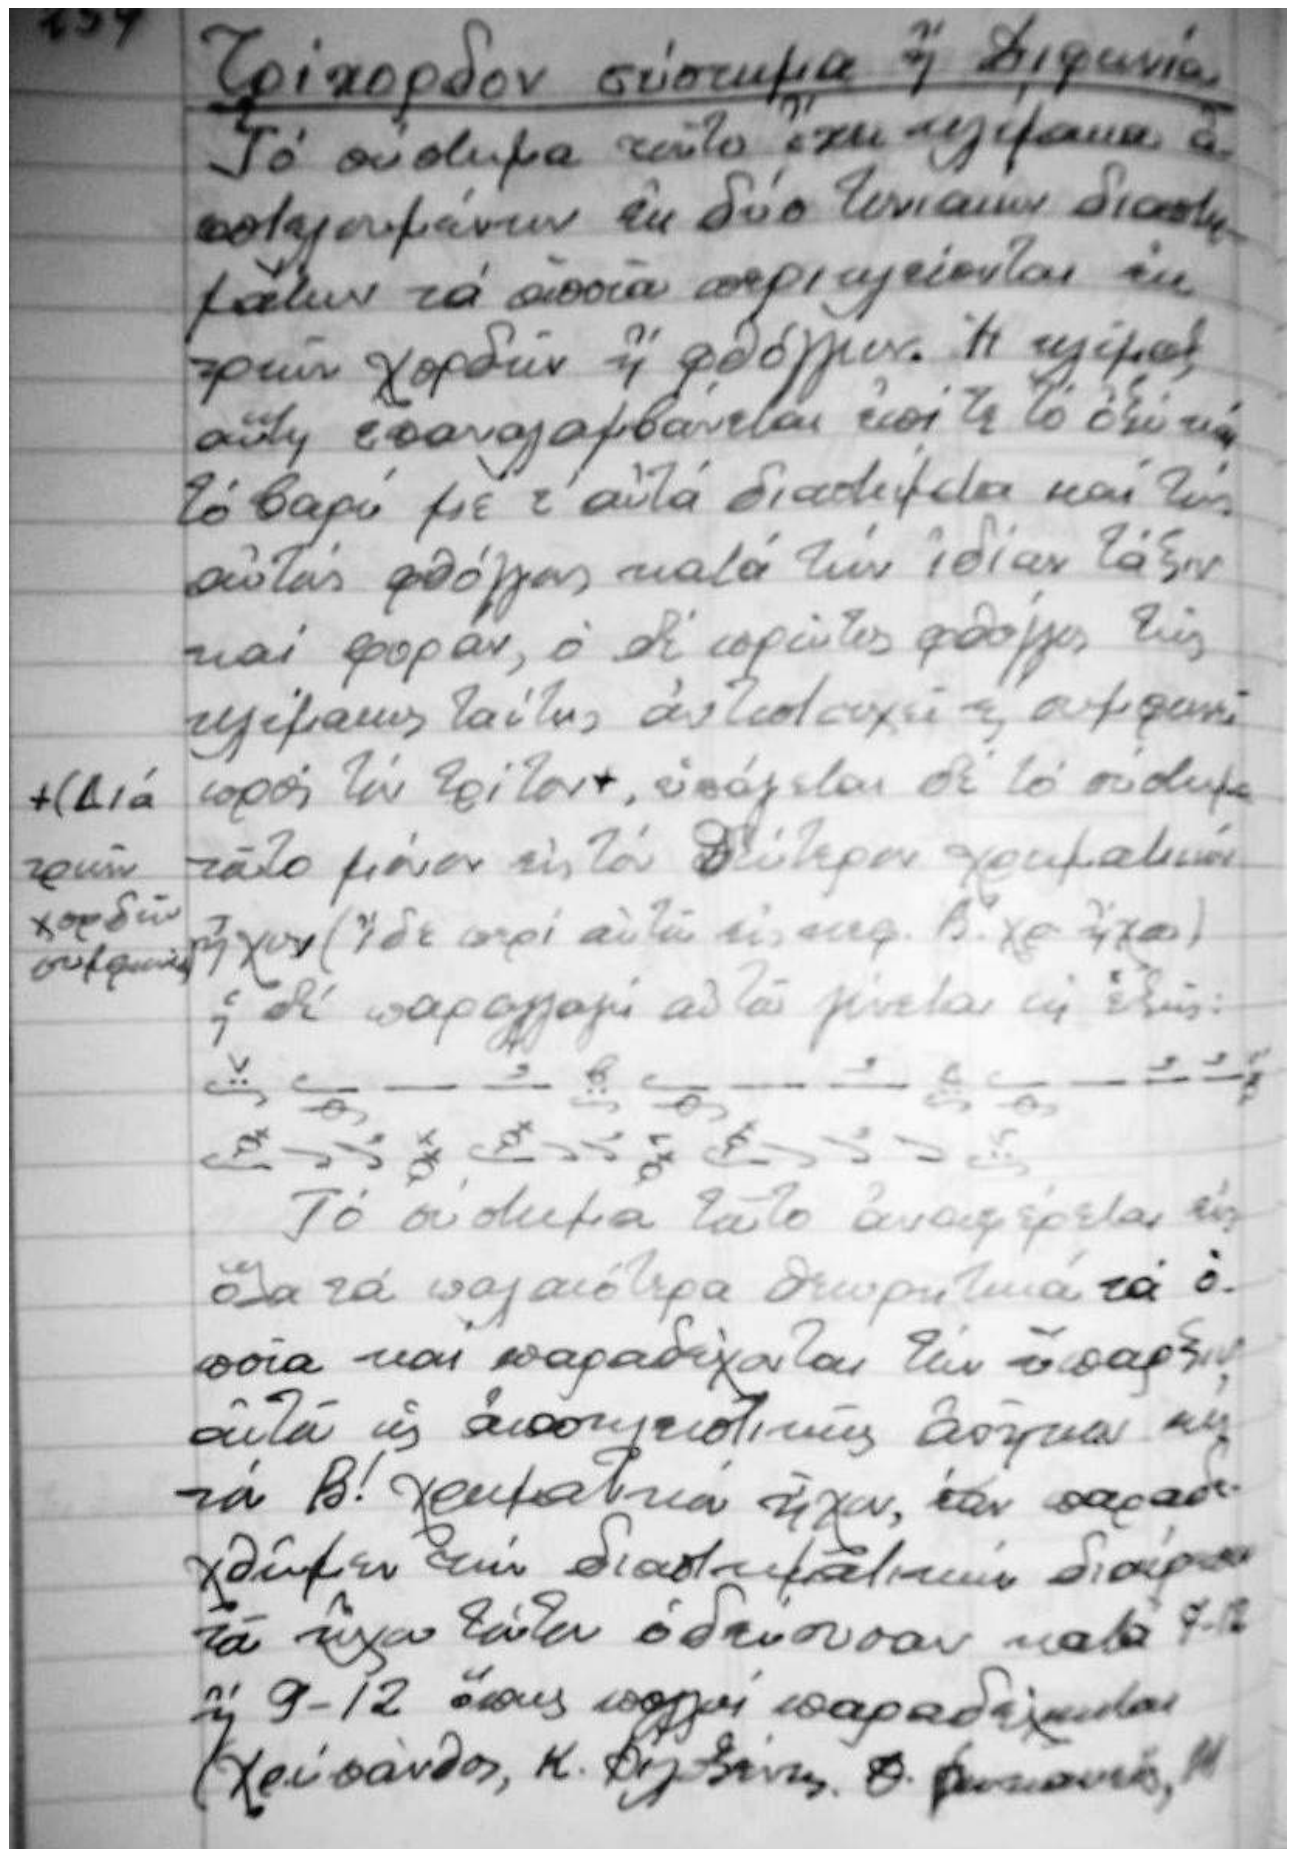 Τρίχορδον σύστημα ἤ Διφωνία
Τό σύστημα τοῦτο ἔχει κλίμακα ἀ-
ποτελουμένην ἐκ δύο τονιαίων διαστη-
μάτων τά ὁποῖα περικλείονται ἐκ
τριῶν χορδῶν ἤ φθόγγων. Ἡ κλίμαξ
αὕτη ἐπαναλαμβάνεται ἐπί τε τό ὀξύ καί
τό βαρύ μέ τ' αὐτά διαστήματα καί τούς
αὐτούς φθόγγους κατά τήν ἰδίαν τάξιν
καί φοράν, ὁ δέ πρῶτος φθόγγος τῆς
κλίμακος ταύτης ἀντιστοιχεῖ ἤ συμφωνεῖ
πρός τόν τρίτον+, ὑπάγεται δέ τό σύστημα
τοῦτο μόνον εἰς τόν Δεύτερον χρωματικόν
ἦχον (ἴδε περί αὐτοῦ εἰς κεφ. Β΄. χρ ἤχου)
ἡ δέ παραλλαγή αὐτοῦ γίνεται ὡς ἑξῆς:
+(Διά
τριῶν
χορδῶν
συμφωνία
Τό σύστημα τοῦτο ἀναφέρεται εἰς
ὅλα τά παλαιότερα θεωρητικά τά ὁ-
ποῖα καί παραδέχονται τήν ὕπαρξιν
αὐτοῦ ὡς ἀποκλειστικῶς ἀνῆκον εἰς
τόν Β΄. χρωματικόν ἦχον, ἐάν παραδε-
χθῶμεν τήν διαστηματικήν διαίρεσιν
τοῦ ἤχου τούτου ὁδεύουσαν κατά 7-12
ἤ 9-12 ὅπως πολλοί παραδέχονται
(Χρύσανθος, Κ.